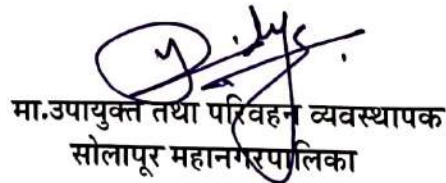 मा.उपायुक्त तथा परिवहन व्यवस्थापक
सोलापूर महानगरपालिका